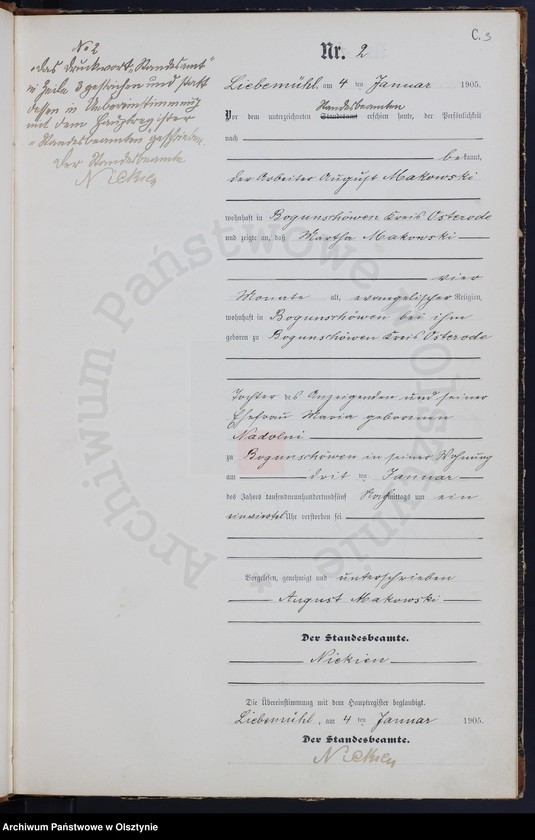 C. 3
No 2
"das Druckwort "Standesamt"
in Zeile 3 gestrichen und statt
dessen in Uebereinstimmung
mit dem Hauptregister
"Standesbeamten" geschrieben.
Der Standesbeamte
Nickien
Nr. 2
Liebemühl, am 4 ten Januar 1905.
Standesbeamten
Vor dem unterzeichneten Standesamt erschien heute, der Persönlichkeit
nach
bekannt,
der Arbeiter August Makowski
wohnhaft in Bogunschöwen Kreis Osterode
und zeigte an, daß Martha Makowski
vier
Monate alt, evangelischer Religion,
wohnhaft in Bogunschöwen bei ihm
geboren zu Bogunschöwen Kreis Osterode
Tochter des Anzeigenden und seiner
Ehefrau Maria geborenen
Nadolni
zu Bogunschöwen in seiner Wohnung
am drit ten Januar
des Jahres tausendneunhundertundfünf Nachmittags um ein
einviertel Uhr verstorben sei
Vorgelesen, genehmigt und unterschrieben
August Makowski
Der Standesbeamte.
Nickien
Die Übereinstimmung mit dem Hauptregister beglaubigt.
Liebemühl, am 4 ten Januar 1905.
Der Standesbeamte.
Nickien
Archiwum Państwowe w Olsztynie *
Archiwum Państwowe w Olsztynie